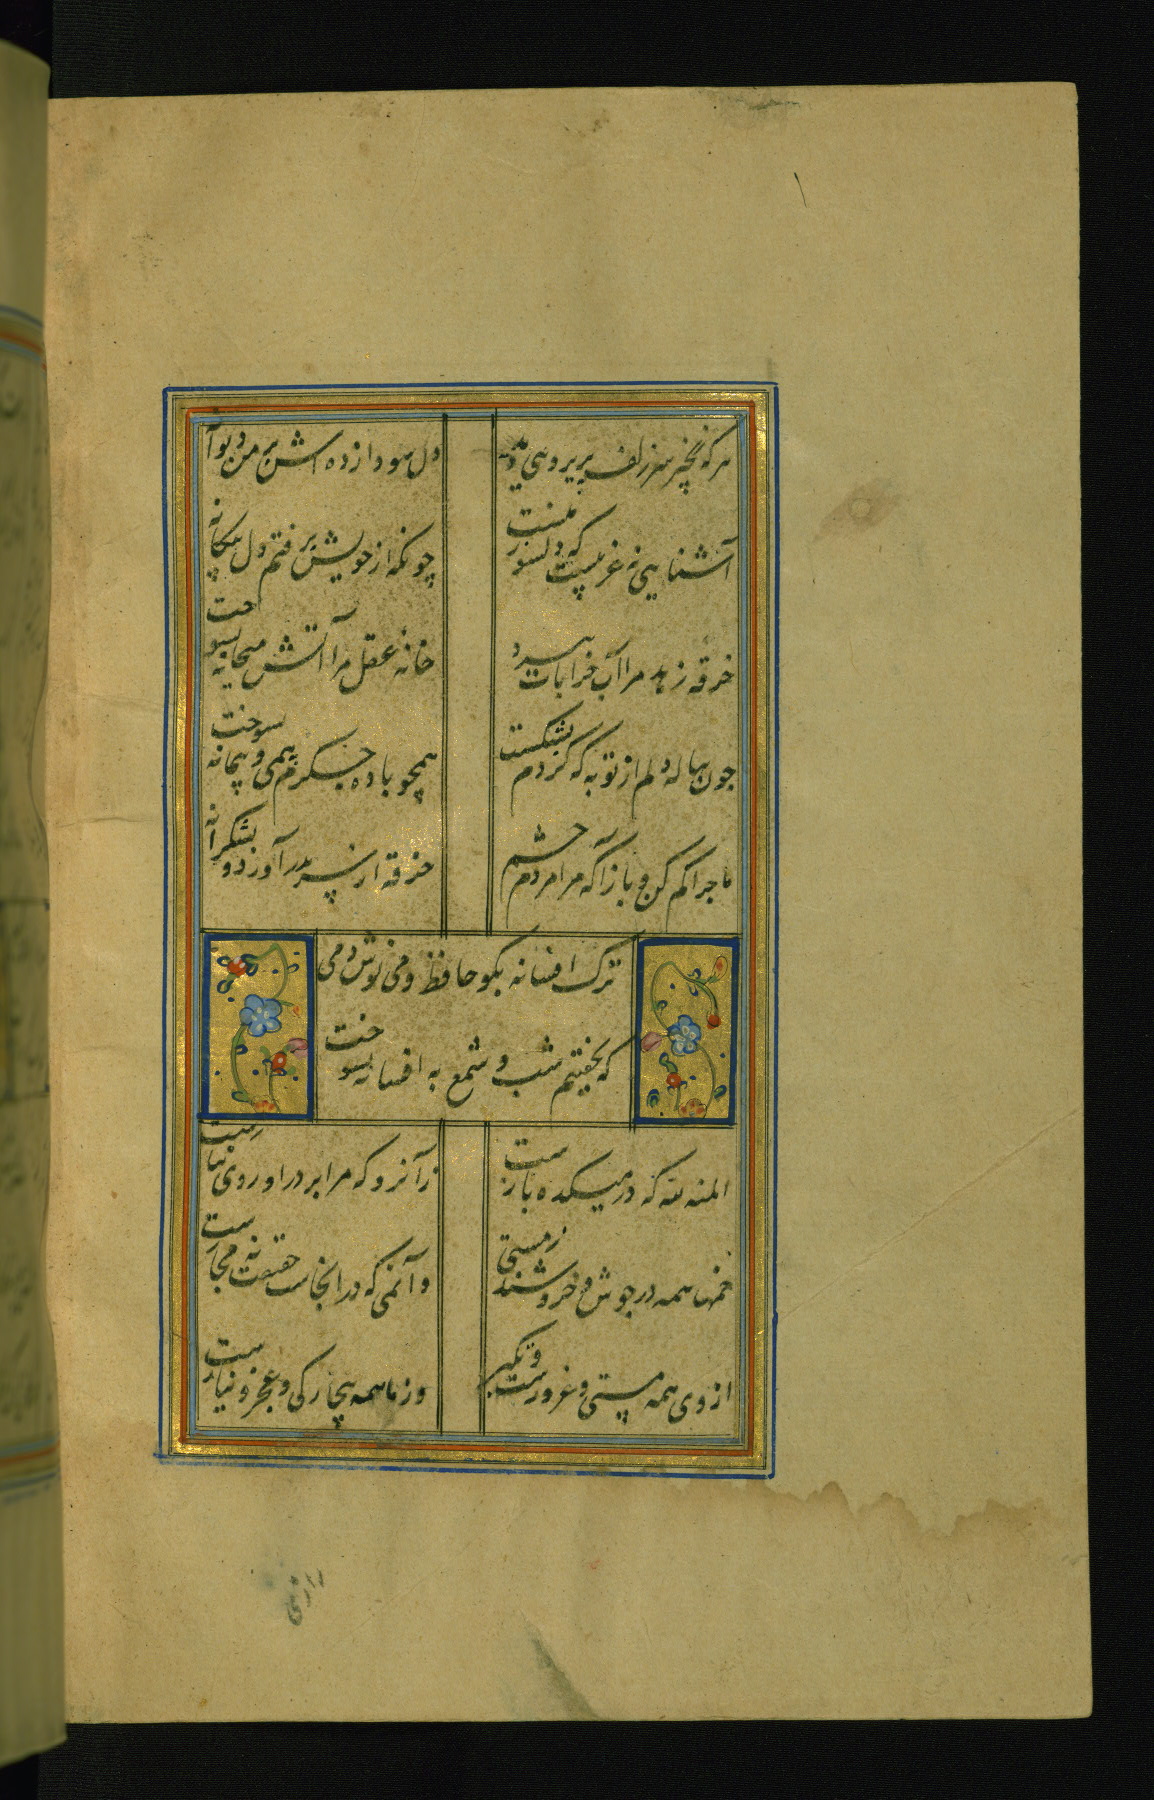 هرکه زنجیر سر زلف پریروئی دید
دل سودازده اش بر من دیوا
آشنایی نه غریبست که دلسوز منست
چونکه از خویش برفتم دل بیکانه
خرقه زهد مرا آب خرابات ببرد
خانه عقل مرا آتش میخانه بسوخت
چون پیاله دلم از توبه که کردم بشکست
همچو باده جگرم بی می و پیمانه سوخت
ماجرا کم کن و باز آ که مرا مردم چشم
خرقه از سر بدر آورد و بشکرانه
ترک افسانه بکو حافظ و می نوش دمی
که نخفتیم شب و شمع به افسانه بسوخت
المنه لله که در میکده بازست
زآنرو که مرا بر در او روی نیازست
خمها همه در جوش و خروشند ز مستی
وآنمی که در انجاست حقیقت نه مجازست
از وی همه مستی و غرورست و تکبر
وز ما همه بیچارکی و عجز و نیازست
رازی